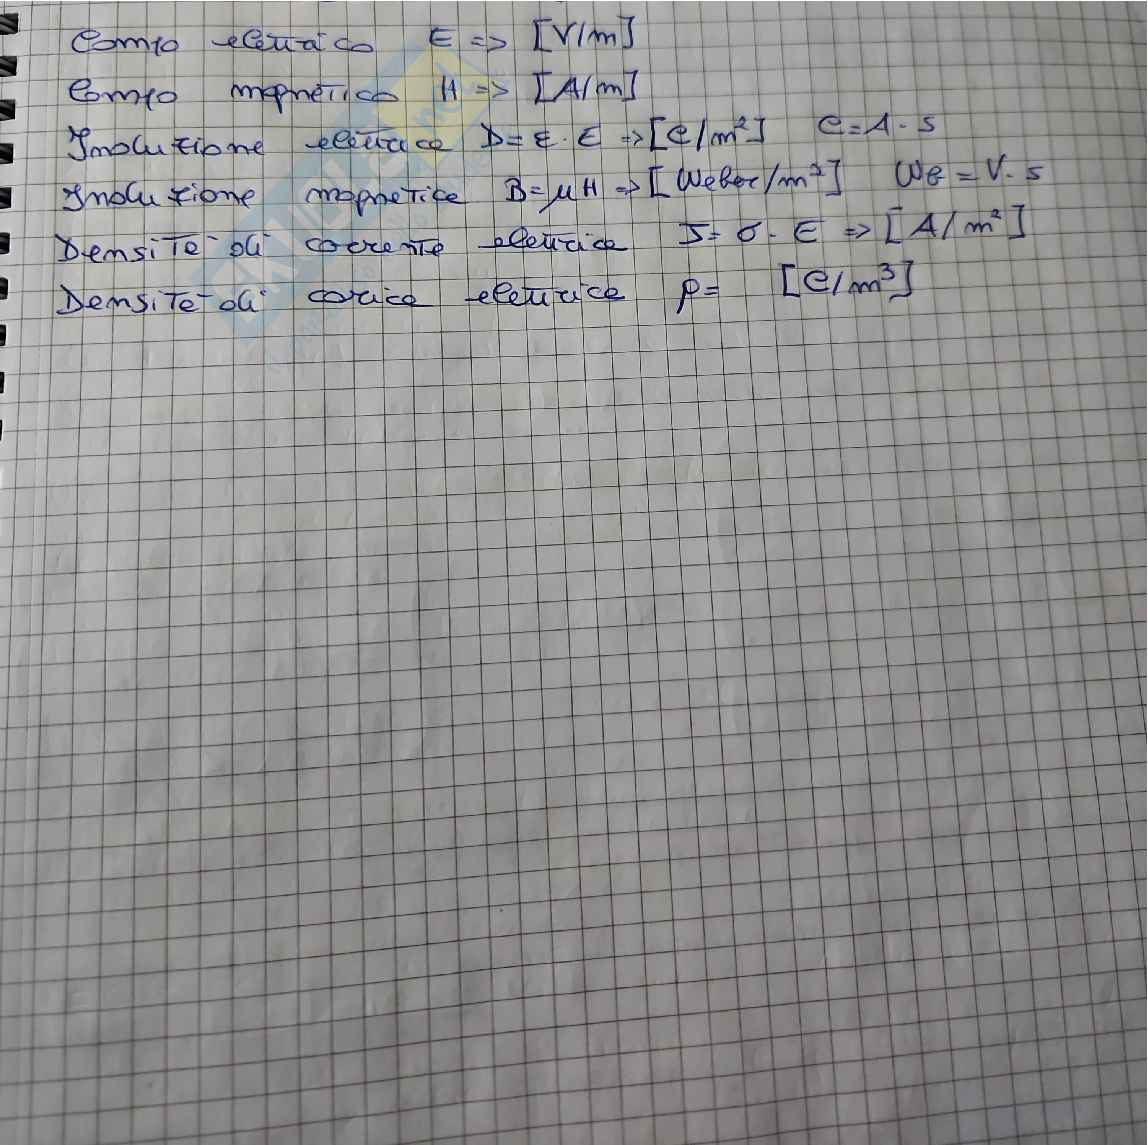 Campo elettrico E => [V/m]
Campo magnetico H => [A/m]
Induzione elettrica D = ε · E => [C/m²] C = A · s
Induzione magnetica B = μ H => [Weber/m²] Wb = V · s
Densità di corrente elettrica J = σ · E => [A/m²]
Densità di carica elettrica ρ = [C/m³]